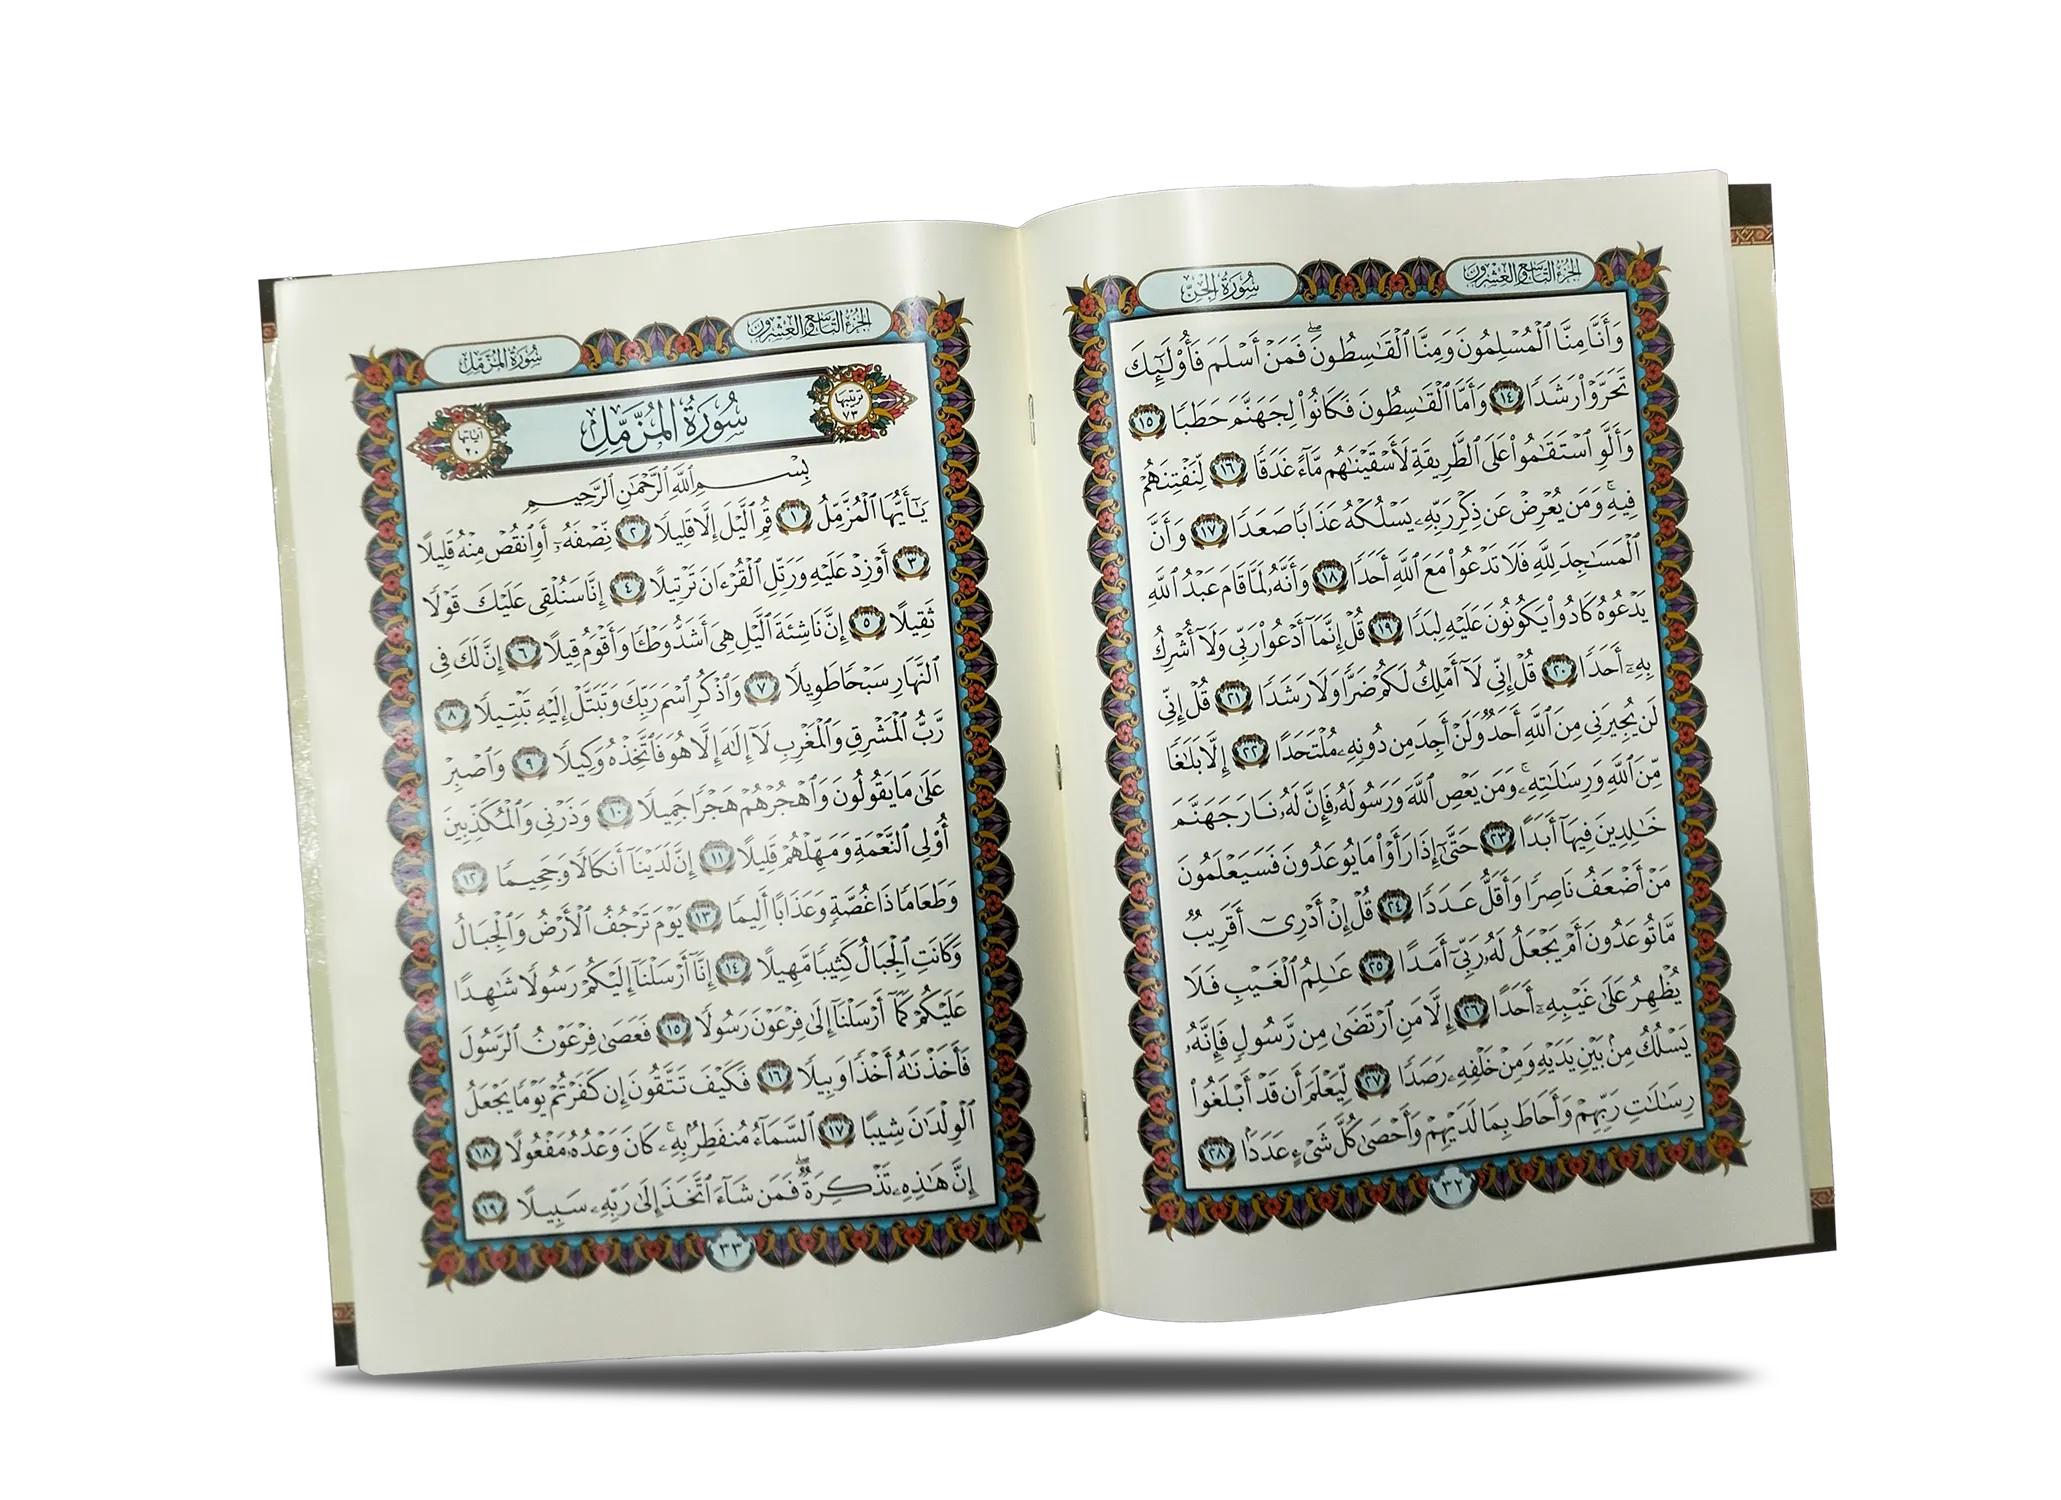 الجزء التاسع والعشرون
سورة الجن
وَأَنَّا مِنَّا ٱلْمُسْلِمُونَ وَمِنَّا ٱلْقَٰسِطُونَ ۖ فَمَنْ أَسْلَمَ فَأُو۟لَٰٓئِكَ
تَحَرَّوْا۟ رَشَدًا ١٤ وَأَمَّا ٱلْقَٰسِطُونَ فَكَانُوا۟ لِجَهَنَّمَ حَطَبًا ١٥
وَأَلَّوِ ٱسْتَقَٰمُوا۟ عَلَى ٱلطَّرِيقَةِ لَأَسْقَيْنَٰهُم مَّآءً غَدَقًا ١٦ لِّنَفْتِنَهُمْ
فِيهِ ۚ وَمَن يُعْرِضْ عَن ذِكْرِ رَبِّهِۦ يَسْلُكْهُ عَذَابًا صَعَدًا ١٧ وَأَنَّ
ٱلْمَسَٰجِدَ لِلَّهِ فَلَا تَدْعُوا۟ مَعَ ٱللَّهِ أَحَدًا ١٨ وَأَنَّهُۥ لَمَّا قَامَ عَبْدُ ٱللَّهِ
يَدْعُوهُ كَادُوا۟ يَكُونُونَ عَلَيْهِ لِبَدًا ١٩ قُلْ إِنَّمَآ أَدْعُوا۟ رَبِّى وَلَآ أُشْرِكُ
بِهِۦٓ أَحَدًا ٢٠ قُلْ إِنِّى لَآ أَمْلِكُ لَكُمْ ضَرًّا وَلَا رَشَدًا ٢١ قُلْ إِنِّى
لَن يُجِيرَنِى مِنَ ٱللَّهِ أَحَدٌ وَلَنْ أَجِدَ مِن دُونِهِۦ مُلْتَحَدًا ٢٢ إِلَّا بَلَٰغًا
مِّنَ ٱللَّهِ وَرِسَٰلَٰتِهِۦ ۚ وَمَن يَعْصِ ٱللَّهَ وَرَسُولَهُۥ فَإِنَّ لَهُۥ نَارَ جَهَنَّمَ
خَٰلِدِينَ فِيهَآ أَبَدًا ٢٣ حَتَّىٰٓ إِذَا رَأَوْا۟ مَا يُوعَدُونَ فَسَيَعْلَمُونَ
مَنْ أَضْعَفُ نَاصِرًا وَأَقَلُّ عَدَدًا ٢٤ قُلْ إِنْ أَدْرِىٓ أَقَرِيبٌ
مَّا تُوعَدُونَ أَمْ يَجْعَلُ لَهُۥ رَبِّىٓ أَمَدًا ٢٥ عَٰلِمُ ٱلْغَيْبِ فَلَا
يُظْهِرُ عَلَىٰ غَيْبِهِۦٓ أَحَدًا ٢٦ إِلَّا مَنِ ٱرْتَضَىٰ مِن رَّسُولٍ فَإِنَّهُۥ
يَسْلُكُ مِنۢ بَيْنِ يَدَيْهِ وَمِنْ خَلْفِهِۦ رَصَدًا ٢٧ لِّيَعْلَمَ أَن قَدْ أَبْلَغُوا۟
رِسَٰلَٰتِ رَبِّهِمْ وَأَحَاطَ بِمَا لَدَيْهِمْ وَأَحْصَىٰ كُلَّ شَىْءٍ عَدَدًۢا ٢٨
٣٢
الجزء التاسع والعشرون
سورة المزمل
ترتيبها ٧٣
سُورَةُ المُزَّمِّلِ
آياتها ٢٠
بِسْمِ ٱللَّهِ ٱلرَّحْمَٰنِ ٱلرَّحِيمِ
يَٰٓأَيُّهَا ٱلْمُزَّمِّلُ ١ قُمِ ٱلَّيْلَ إِلَّا قَلِيلًا ٢ نِّصْفَهُۥٓ أَوِ ٱنقُصْ مِنْهُ قَلِيلًا
٣ أَوْ زِدْ عَلَيْهِ وَرَتِّلِ ٱلْقُرْءَانَ تَرْتِيلًا ٤ إِنَّا سَنُلْقِى عَلَيْكَ قَوْلًا
ثَقِيلًا ٥ إِنَّ نَاشِئَةَ ٱلَّيْلِ هِىَ أَشَدُّ وَطْـًٔا وَأَقْوَمُ قِيلًا ٦ إِنَّ لَكَ فِى
ٱلنَّهَارِ سَبْحًا طَوِيلًا ٧ وَٱذْكُرِ ٱسْمَ رَبِّكَ وَتَبَتَّلْ إِلَيْهِ تَبْتِيلًا ٨
رَّبُّ ٱلْمَشْرِقِ وَٱلْمَغْرِبِ لَآ إِلَٰهَ إِلَّا هُوَ فَٱتَّخِذْهُ وَكِيلًا ٩ وَٱصْبِرْ
عَلَىٰ مَا يَقُولُونَ وَٱهْجُرْهُمْ هَجْرًا جَمِيلًا ١٠ وَذَرْنِى وَٱلْمُكَذِّبِينَ
أُو۟لِى ٱلنَّعْمَةِ وَمَهِّلْهُمْ قَلِيلًا ١١ إِنَّ لَدَيْنَآ أَنكَالًا وَجَحِيمًا ١٢
وَطَعَامًا ذَا غُصَّةٍ وَعَذَابًا أَلِيمًا ١٣ يَوْمَ تَرْجُفُ ٱلْأَرْضُ وَٱلْجِبَالُ
وَكَانَتِ ٱلْجِبَالُ كَثِيبًا مَّهِيلًا ١٤ إِنَّآ أَرْسَلْنَآ إِلَيْكُمْ رَسُولًا شَٰهِدًا
عَلَيْكُمْ كَمَآ أَرْسَلْنَآ إِلَىٰ فِرْعَوْنَ رَسُولًا ١٥ فَعَصَىٰ فِرْعَوْنُ ٱلرَّسُولَ
فَأَخَذْنَٰهُ أَخْذًا وَبِيلًا ١٦ فَكَيْفَ تَتَّقُونَ إِن كَفَرْتُمْ يَوْمًا يَجْعَلُ
ٱلْوِلْدَٰنَ شِيبًا ١٧ ٱلسَّمَآءُ مُنفَطِرٌۢ بِهِۦ ۚ كَانَ وَعْدُهُۥ مَفْعُولًا ١٨
إِنَّ هَٰذِهِۦ تَذْكِرَةٌ ۖ فَمَن شَآءَ ٱتَّخَذَ إِلَىٰ رَبِّهِۦ سَبِيلًا ١٩
٣٣